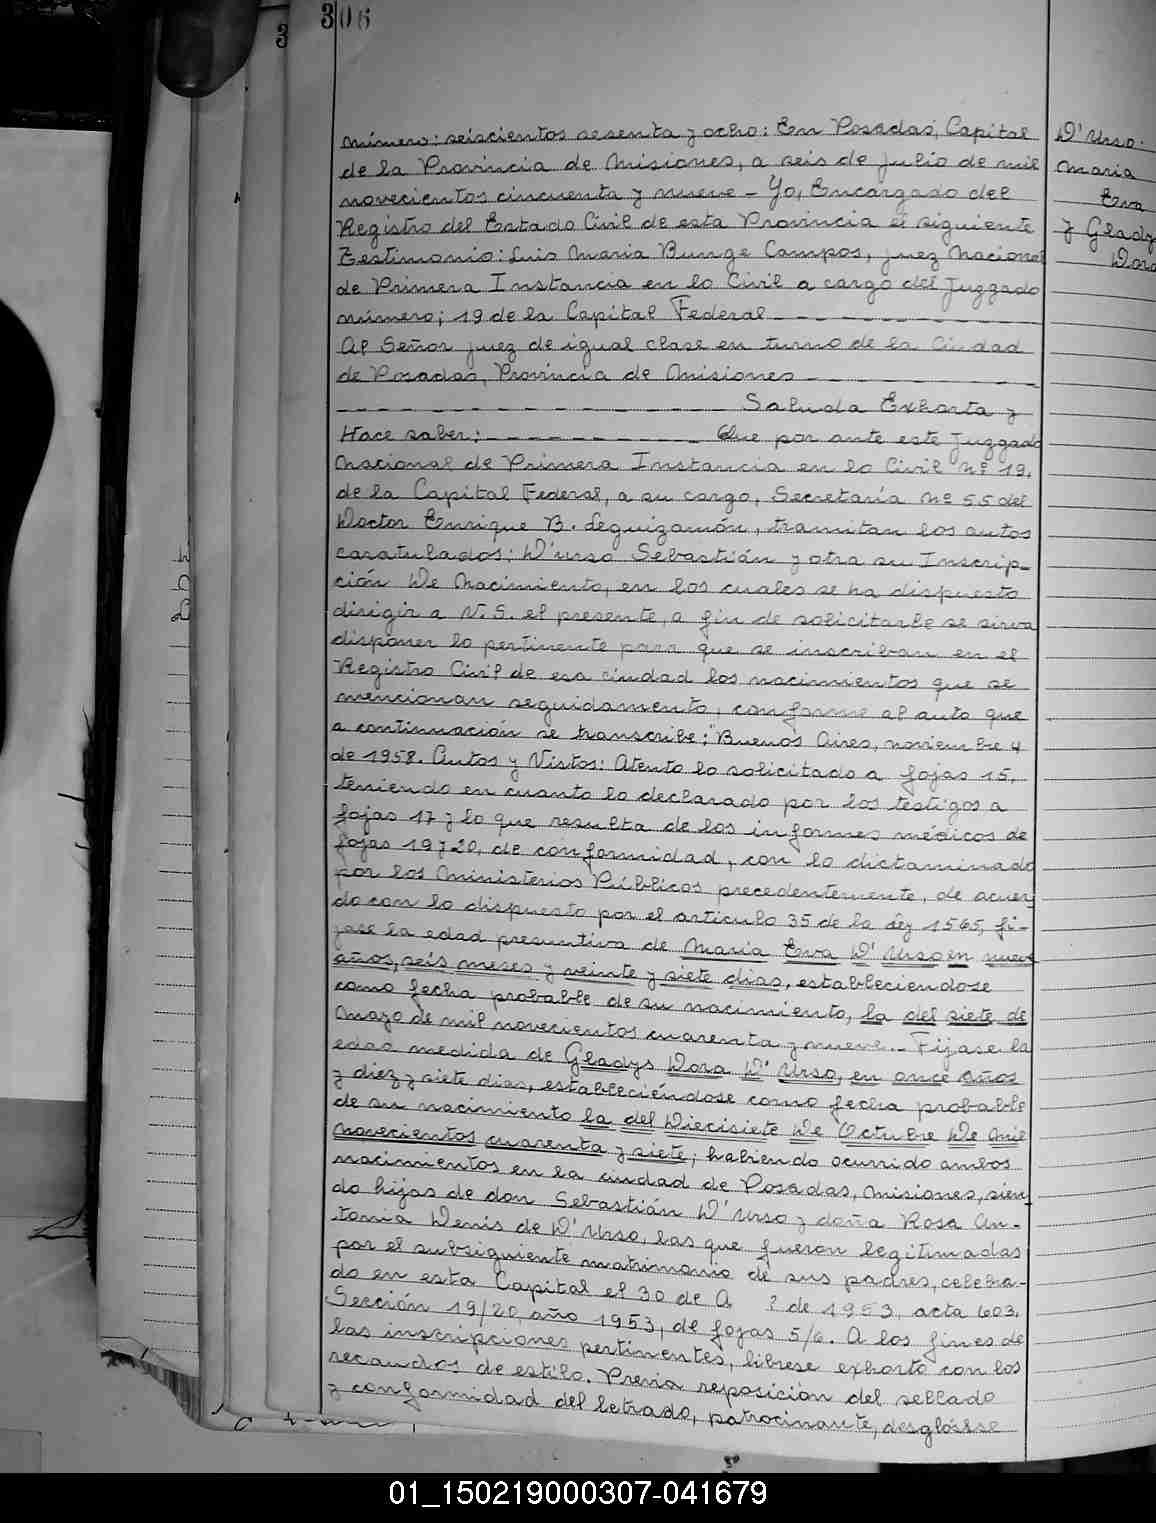 306
3
Número: seiscientos sesenta y ocho: En Posadas, Capital
de la Provincia de Misiones, a seis de julio de mil
novecientos cincuenta y nueve - Yo, Encargado del
Registro del Estado Civil de esta Provincia el siguiente
Testimonio: Luis Maria Bunge Campos, juez Nacional
de Primera Instancia en lo Civil a cargo del Juzgado
número; 19 de la Capital Federal
Al Señor juez de igual clase en turno de la Ciudad
de Posadas, Provincia de Misiones
Saluda Exhorta y
Hace saber: Que por ante este Juzgado
Nacional de Primera Instancia en lo Civil Nº 19.
de la Capital Federal, a su cargo, Secretaría Nº 55 del
Doctor Enrique B. Leguizamón, tramitan los autos
caratulados: D'urso Sebastián y otra su Inscrip-
ción De Nacimiento, en los cuales se ha dispuesto
dirigir a V.S. el presente, a fin de solicitarle se sirva
disponer lo pertinente para que se inscriban en el
Registro Civil de esa ciudad los nacimientos que se
mencionan seguidamento, conforme al auto que
a continuación se transcribe: "Buenos Aires, noviembre 4
de 1958. Autos y Vistos: Atento lo solicitado a fojas 15,
teniendo en cuanto lo declarado por los testigos a
fojas 17 y lo que resulta de los informes médicos de
fojas 19 y 20, de conformidad, con lo dictaminado
por los Ministerios Públicos precedentemente, de acuer
do con lo dispuesto por el artículo 35 de la Ley 1565, fí-
jase la edad presuntiva de Maria Eva D' Urso en nueve
años, seis meses y veinte y siete dias, estableciendose
como fecha probable de su nacimiento, la del siete de
Mayo de mil novecientos cuarenta y nueve.- Fíjase la
edad medida de Gladys Dora D' Urso, en once años
y diez y siete dias, estableciéndose como fecha probable
de su nacimiento la del Diecisiete De Octubre De Mil
novecientos cuarenta y siete; habiendo ocurrido ambos
nacimientos en la ciudad de Posadas, Misiones, sien
do hijas de don Sebastián D'Urso y doña Rosa An-
tonia Denis de D'Urso, las que fueron legitimadas
por el subsiguiente matrimonio de sus padres, celebra-
do en esta Capital el 30 de A ? de 1953, acta 603,
Sección 19/20, año 1953, de fojas 5/6. A los fines de
las inscripciones pertinentes, líbrese exhorto con los
recaudos de estilo. Previa reposición del sellado
y conformidad del letrado, patrocinante, desglósese
D' Urso.
Maria
Eva
y Gladys
Dora
01_150219000307-041679